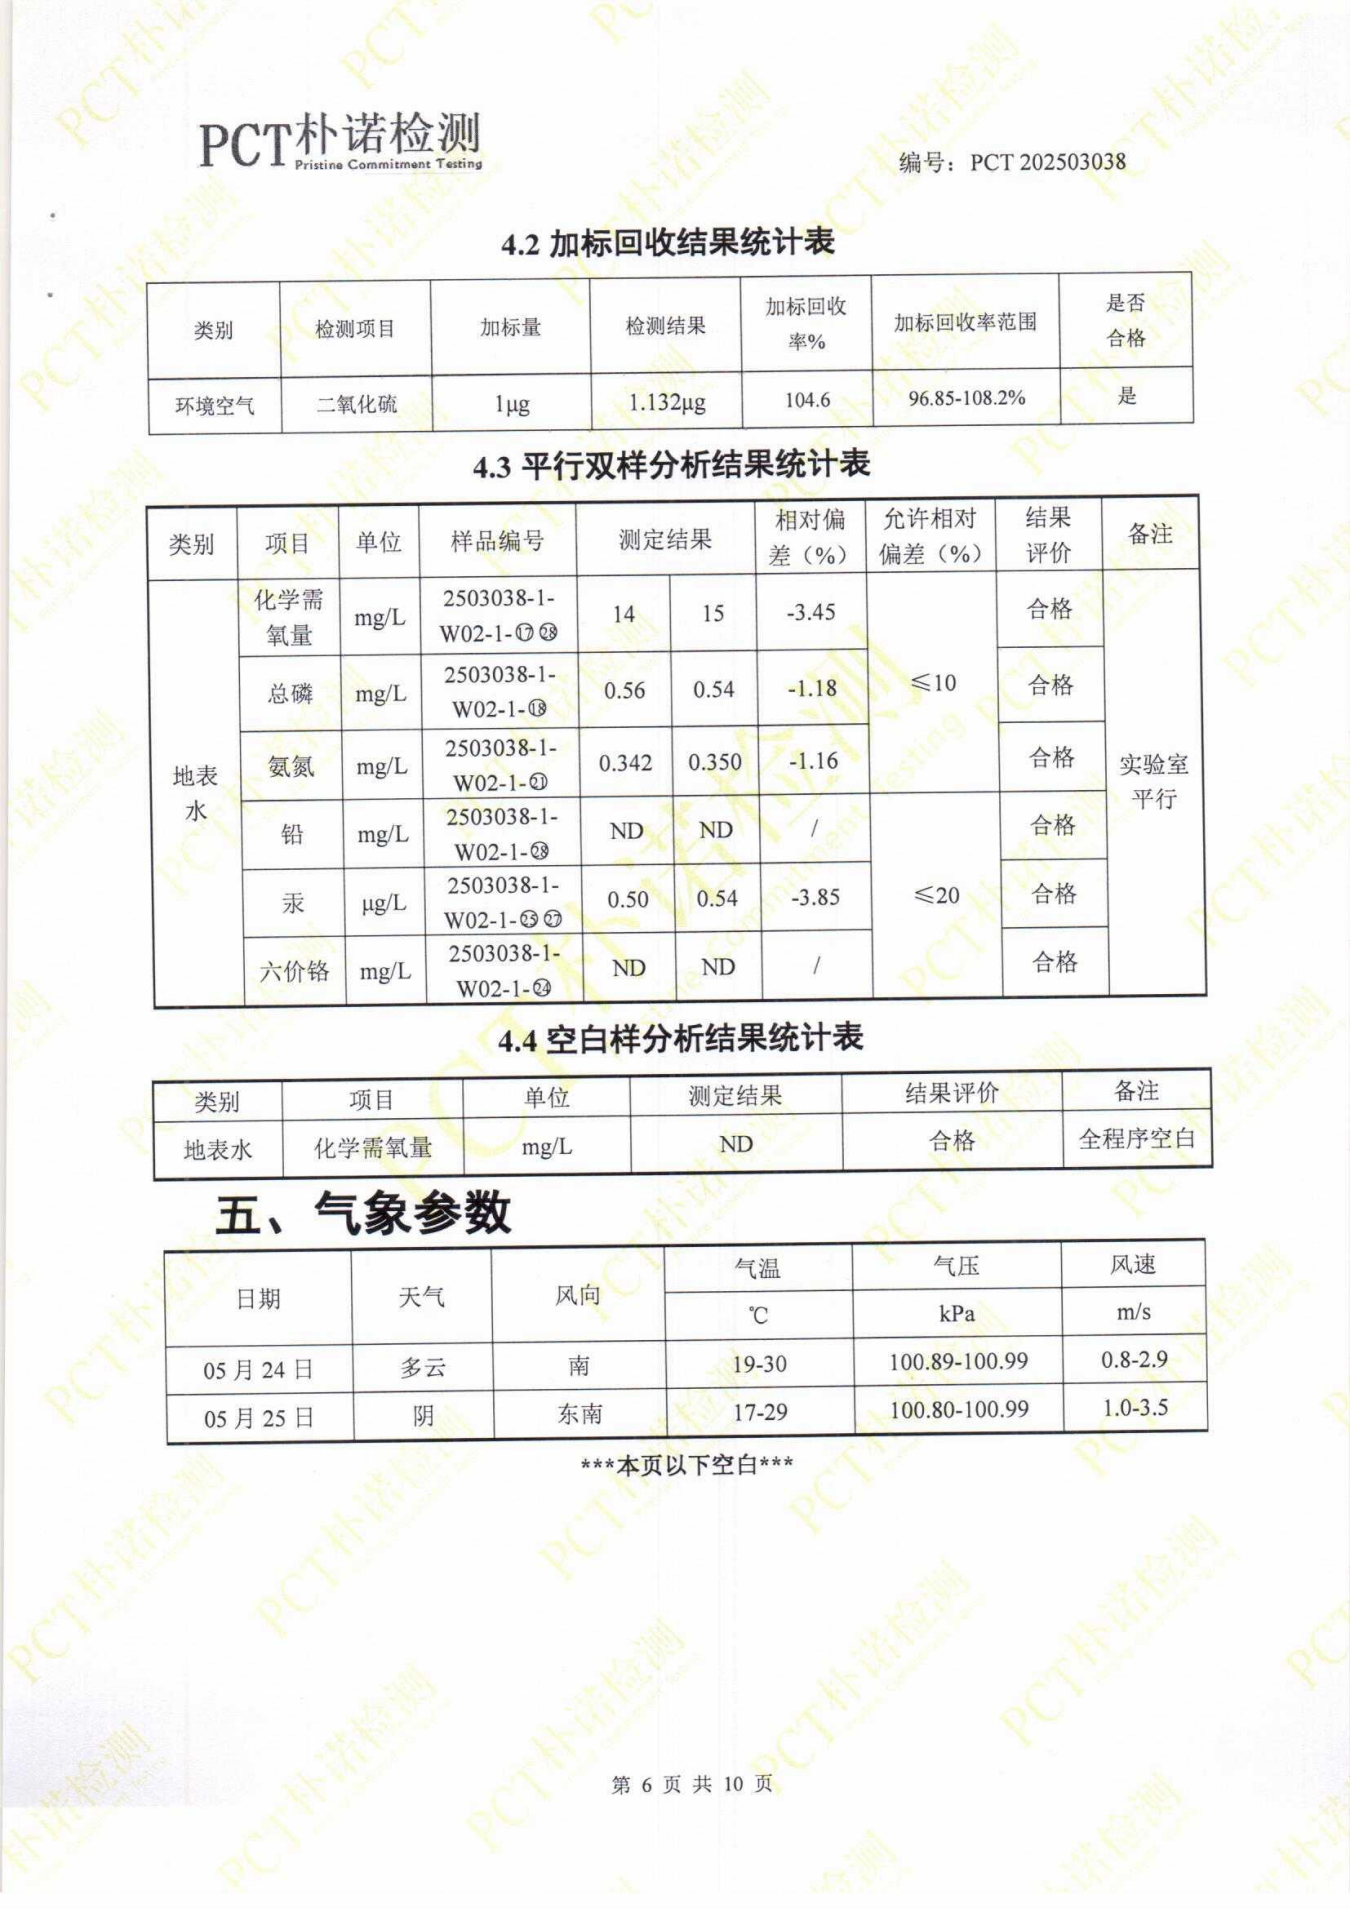 PCT朴诺检测
Pristine Commitment Testing
编号：PCT 202503038
4.2 加标回收结果统计表
类别 检测项目 加标量 检测结果 加标回收率% 加标回收率范围 是否合格
环境空气 二氧化硫 1μg 1.132μg 104.6 96.85-108.2% 是
4.3 平行双样分析结果统计表
类别 项目 单位 样品编号 测定结果 相对偏差（%） 允许相对偏差（%） 结果评价 备注
地表水 化学需氧量 mg/L 2503038-1-W02-1-⑰㉘ 14 15 -3.45 ≤10 合格 实验室平行
总磷 mg/L 2503038-1-W02-1-⑱ 0.56 0.54 -1.18 合格
氨氮 mg/L 2503038-1-W02-1-㉑ 0.342 0.350 -1.16 合格
铅 mg/L 2503038-1-W02-1-㉘ ND ND / ≤20 合格
汞 μg/L 2503038-1-W02-1-㉕㉗ 0.50 0.54 -3.85 合格
六价铬 mg/L 2503038-1-W02-1-㉔ ND ND / 合格
4.4 空白样分析结果统计表
类别 项目 单位 测定结果 结果评价 备注
地表水 化学需氧量 mg/L ND 合格 全程序空白
五、气象参数
日期 天气 风向 气温 气压 风速
℃ kPa m/s
05月24日 多云 南 19-30 100.89-100.99 0.8-2.9
05月25日 阴 东南 17-29 100.80-100.99 1.0-3.5
***本页以下空白***
第 6 页 共 10 页